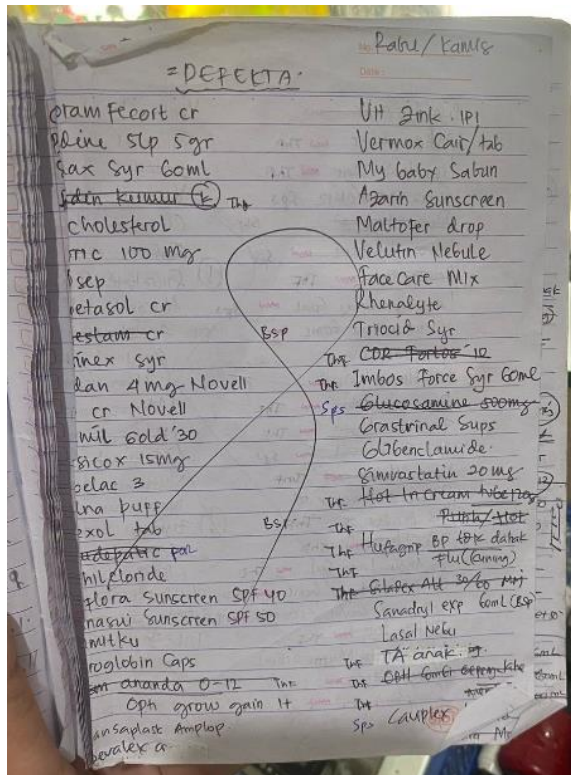 No: Rabu/Kamis
Date:
= DEFEKTA.
oram fecort cr
Sax Syr 60ml
Thf
cholesterol
TTC 100 mg
sep
etasol cr
estam cr
inex syr
dan 4 mg Novell
cr Novell
mil Gold '30
sicox 15mg
elac 3
lna puff
exol tab
flora Sunscreen SPF 40
nasui Sunscreen SPF 50
mitku
roglobin Caps
ananda 0-12 Thf
Oph grow gain 1+
ansaplast Amplop
evalex cr
Bsp
Bsp
VH Zink . IPI
Vermox Cair/tab
My baby Sabun
Azarin Sunscreen
Maltofer drop
Velutin Nebule
Face Care Mix
Rhenalyte
Triocid Syr
Thf CDR Fortos '10
Thf Imbos Force Syr 60ml
Sps Glucosamine 500mg
Grastrinal Sups
Glibenclamide.
Simvastatin 20 mg
Thf Hot In Cream tube
Thf
Thf Hufagrip BP tdk dahak
Flu (kuning)
Thf
Sanadryl exp 60ml (BSP)
Lasal Nebu
Thf TA anak
Thf
Thf
Sps Cauplex